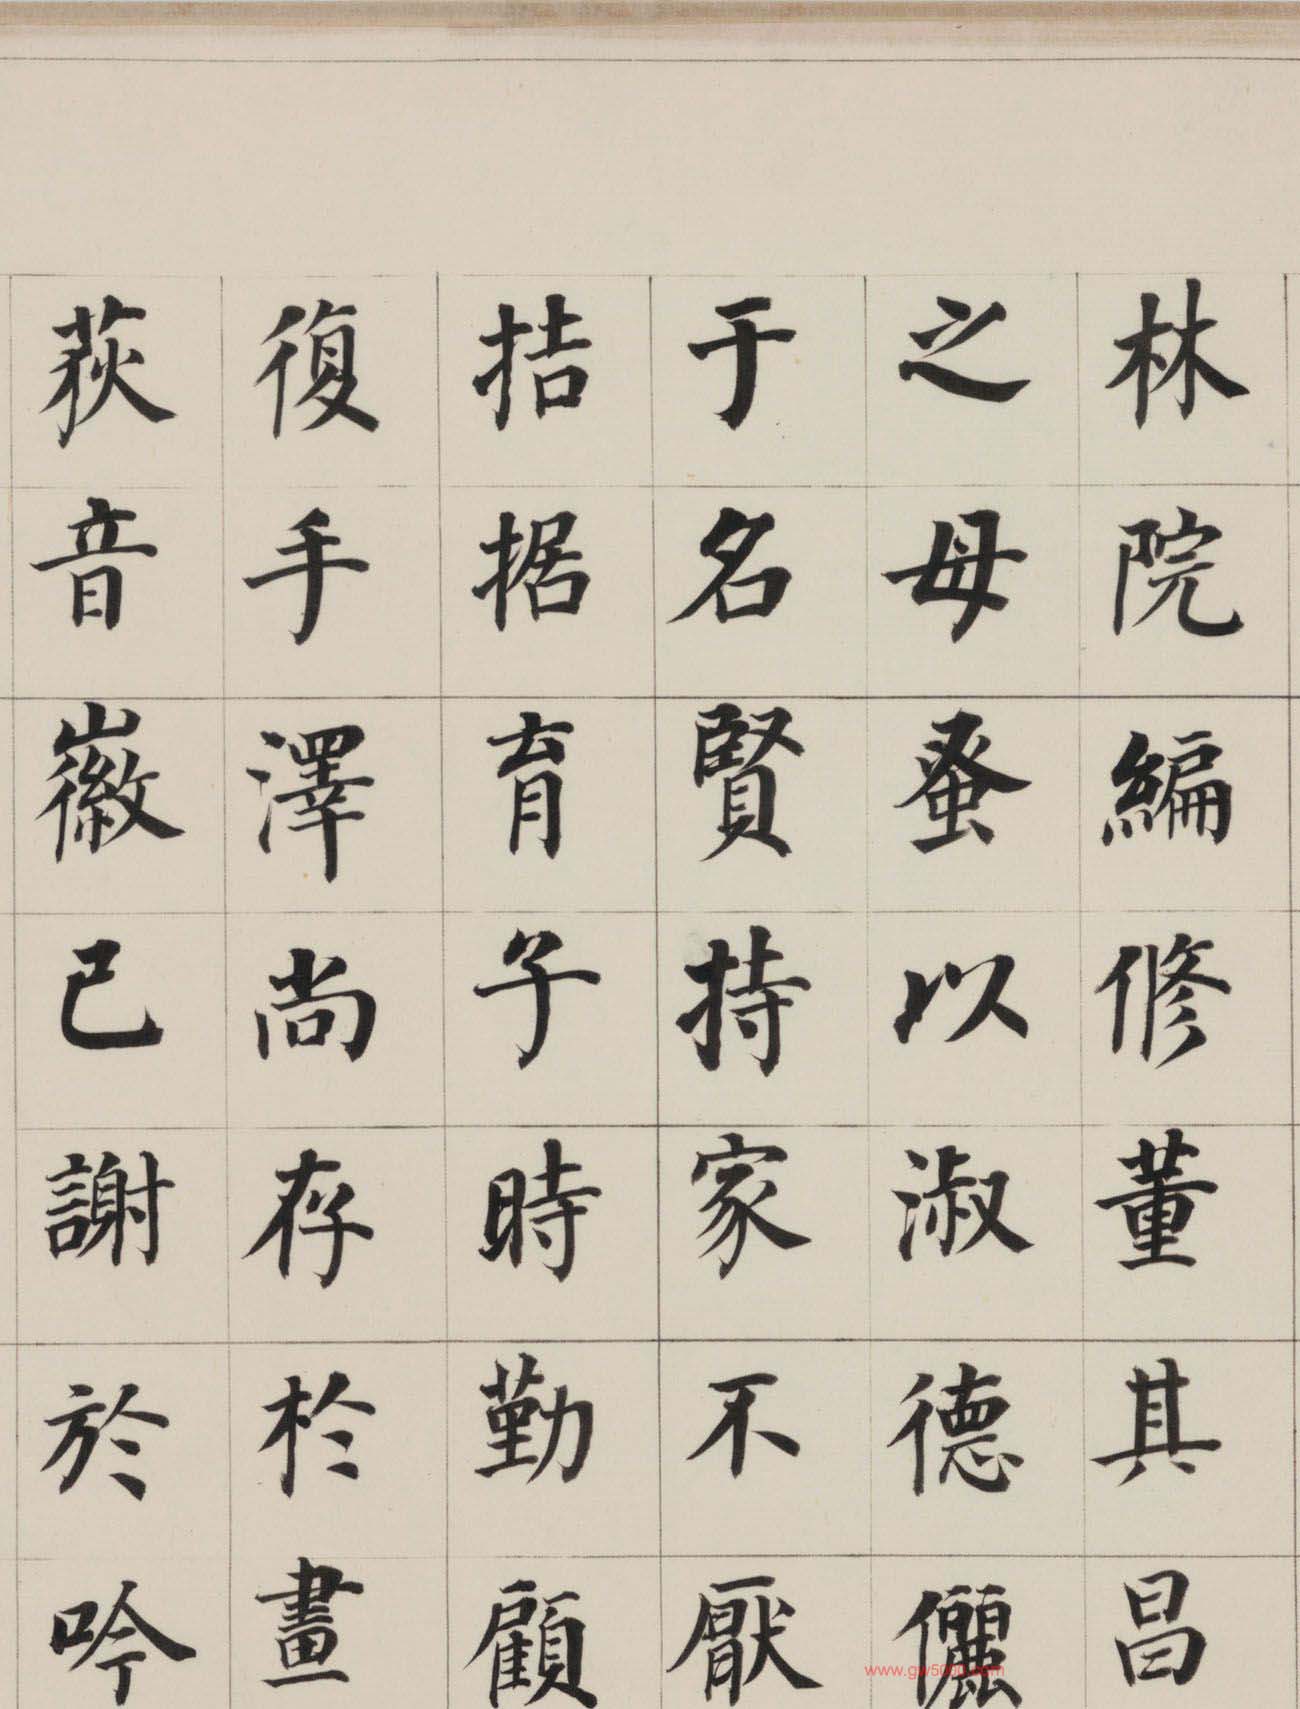 林院編修董其昌
之母蚤以淑德儷
于名賢持家不厭
拮据育子時勤顧
復手澤尚存於畫
荻音徽已謝於吟
www.gw5000.com